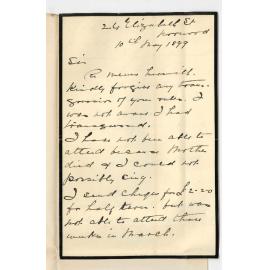 24 Elizabeth St
Norwood
10th May 1899
Sir
Kindly forgive any trans-
gression of your rules. I
was not aware I had
transgressed.
I have not been able to
attend because Mother
died & I could not
possibly sing.
I send cheque for £2-20
for half term. but was
not able to attend three
weeks in March.